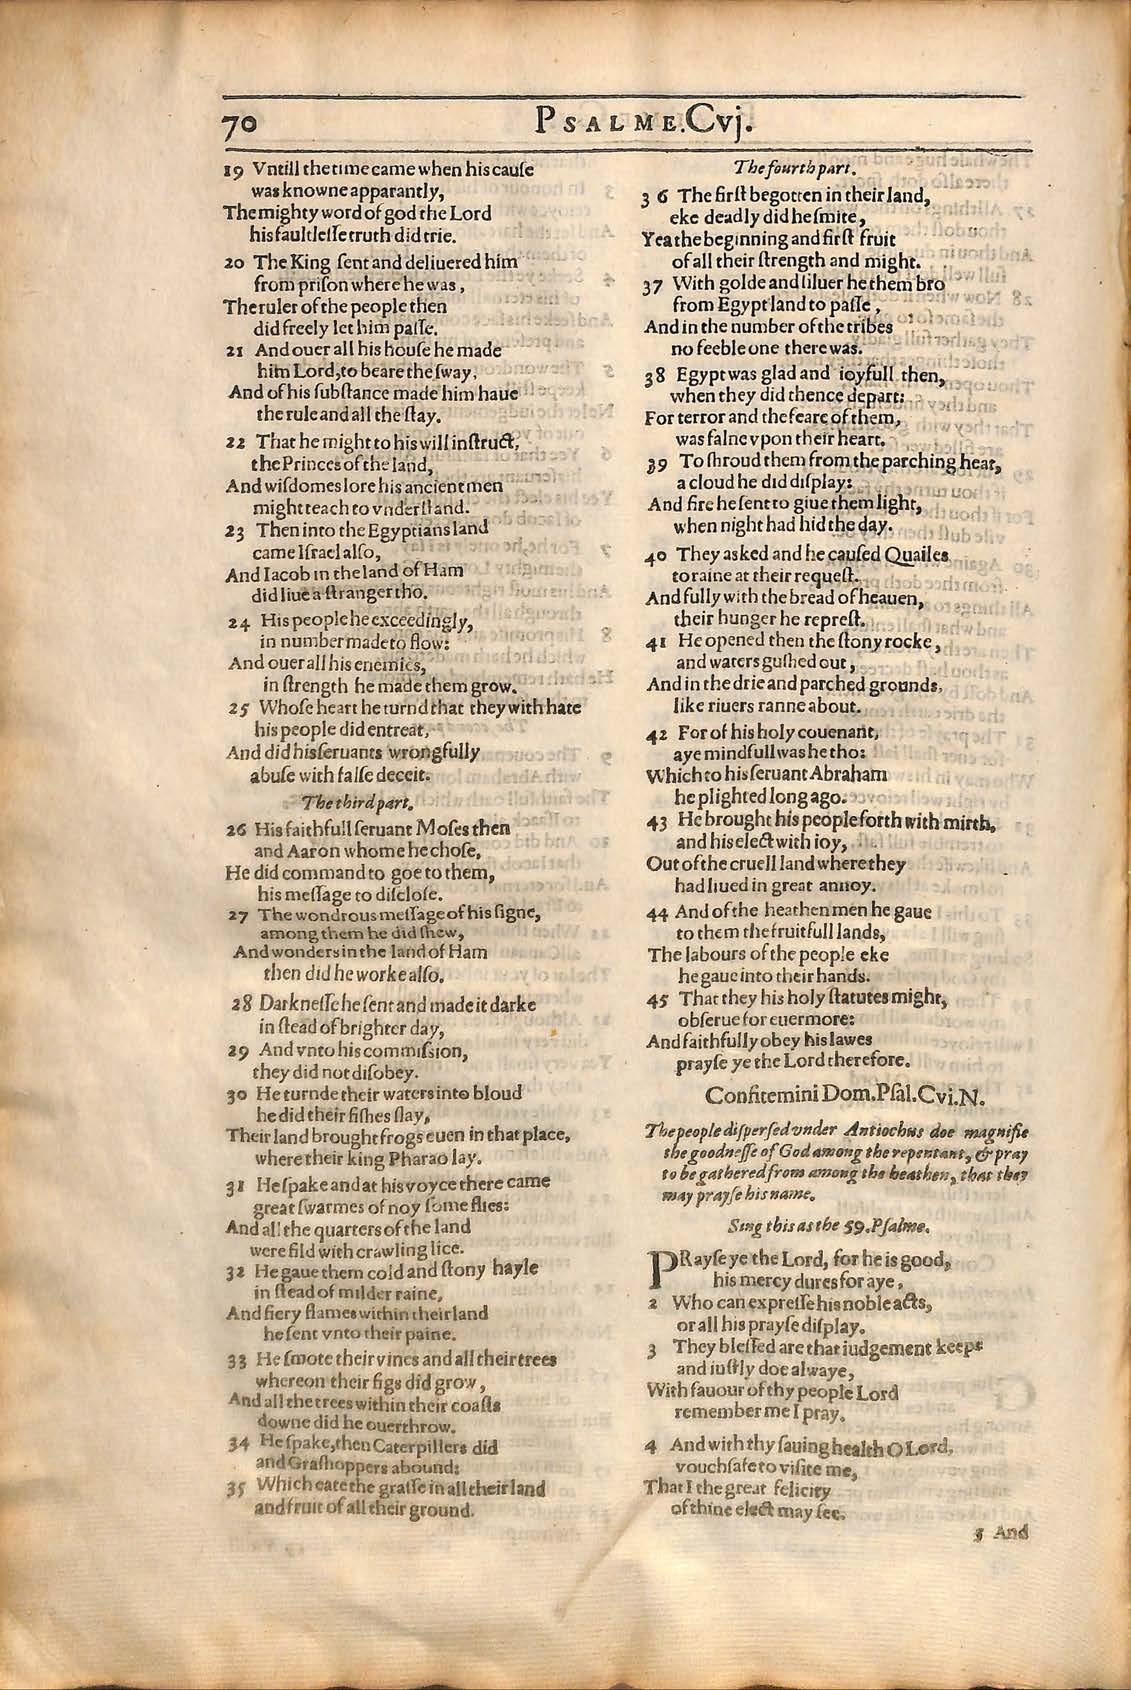 70
PSALME.Cvj.
19 Vntill the time came when his cauſe
was knowne apparantly,
The mighty word of god the Lord
his faultleſſe truth did trie.
20 The King ſent and deliuered him
from priſon where he was,
The ruler of the people then
did freely let him paſſe.
21 And ouer all his houſe he made
him Lord, to beare the ſway,
And of his ſubſtance made him haue
the rule and all the ſtay.
22 That he might to his will inſtruct,
the Princes of the land,
And wiſdomes lore his ancient men
might teach to vnderſtand.
23 Then into the Egyptians land
came Iſrael alſo,
And Iacob in the land of Ham
did liue a ſtranger tho.
24 His people he exceedingly,
in number made to flow:
And ouer all his enemies,
in ſtrength he made them grow.
25 Whoſe heart he turnd that they with hate
his people did entreat,
And did his ſeruants wrongfully
abuſe with falſe deceit.
The third part.
26 His faithfull ſeruant Moſes then
and Aaron whome he choſe,
He did command to goe to them,
his meſſage to diſcloſe.
27 The wondrous meſſage of his ſigne,
among them he did ſhew,
And wonders in the land of Ham
then did he worke alſo.
28 Darkneſſe he ſent and made it darke
in ſtead of brighter day,
29 And vnto his commiſsion,
they did not diſobey.
30 He turnde their waters into bloud
he did their fiſhes ſlay,
Their land brought frogs euen in that place,
where their king Pharao lay.
31 He ſpake and at his voyce there came
great ſwarmes of noy ſome flies:
And all the quarters of the land
were fild with crawling lice.
32 He gaue them cold and ſtony hayle
in ſtead of milder raine,
And fiery flames within their land
he ſent vnto their paine.
33 He ſmote their vines and all their trees
whereon their figs did grow,
And all the trees within their coaſts
downe did he ouerthrow.
34 He ſpake, then Caterpillers did
and Graſhoppers abound:
35 Which eate the graſſe in all their land
and fruit of all their ground.
The fourth part.
3 6 The firſt begotten in their land,
eke deadly did he ſmite,
Yea the beginning and firſt fruit
of all their ſtrength and might.
37 With golde and ſiluer he them bro
from Egypt land to paſſe,
And in the number of the tribes
no feeble one there was.
38 Egypt was glad and ioyfull then,
when they did thence depart:
For terror and the feare of them,
was falne vpon their heart.
39 To ſhroud them from the parching heat,
a cloud he did diſplay:
And fire he ſent to giue them light,
when night had hid the day.
40 They asked and he cauſed Quailes
to raine at their requeſt.
And fully with the bread of heauen,
their hunger he repreſt.
41 He opened then the ſtony rocke,
and waters guſhed out,
And in the drie and parched grounds,
like riuers ranne about.
42 For of his holy couenant,
aye mindfull was he tho:
Which to his ſeruant Abraham
he plighted long ago.
43 He brought his people forth with mirth,
and his elect with ioy,
Out of the cruell land where they
had liued in great annoy.
44 And of the heathen men he gaue
to them the fruitfull lands,
The labours of the people eke
he gaue into their hands.
45 That they his holy ſtatutes might,
obſerue for euermore:
And faithfully obey his lawes
prayſe ye the Lord therefore.
Confitemini Dom. Pſal. Cvi. N.
The people diſperſed vnder Antiochus doe magnifie
the goodneſſe of God among the repentant, & pray
to be gathered from among the heathen, that they
may prayſe his name.
Sing this as the 59. Pſalme.
PRayſe ye the Lord, for he is good,
his mercy dures for aye,
2 Who can expreſſe his noble acts,
or all his prayſe diſplay.
3 They bleſſed are that iudgement keepe
and iuſtly doe alwaye,
With fauour of thy people Lord
remember me I pray.
4 And with thy ſauing health O Lord,
vouchſafe to viſite me,
That I the great felicity
of thine elect may ſee.
5 And